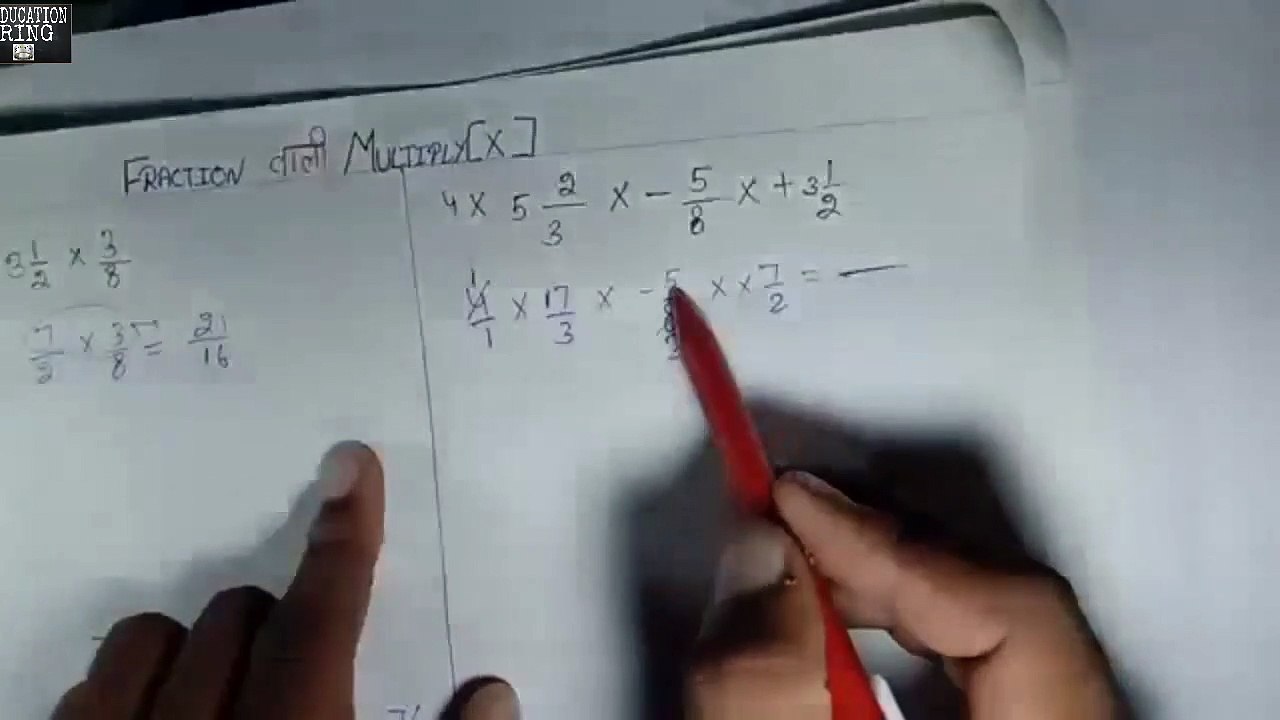 DUCATION
RING
FRACTION वाली MULTIPLY[X]
3 1/2 × 3/8
7/2 × 3/8 = 21/16
4 × 5 2/3 × - 5/8 × + 3 1/2
1
4/1 × 17/3 × - 5/8 × × 7/2 = —
2